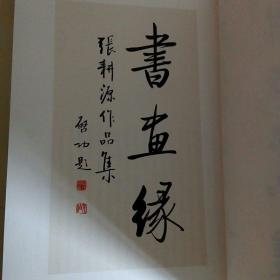 書畫緣
張耕源作品集
啓功題